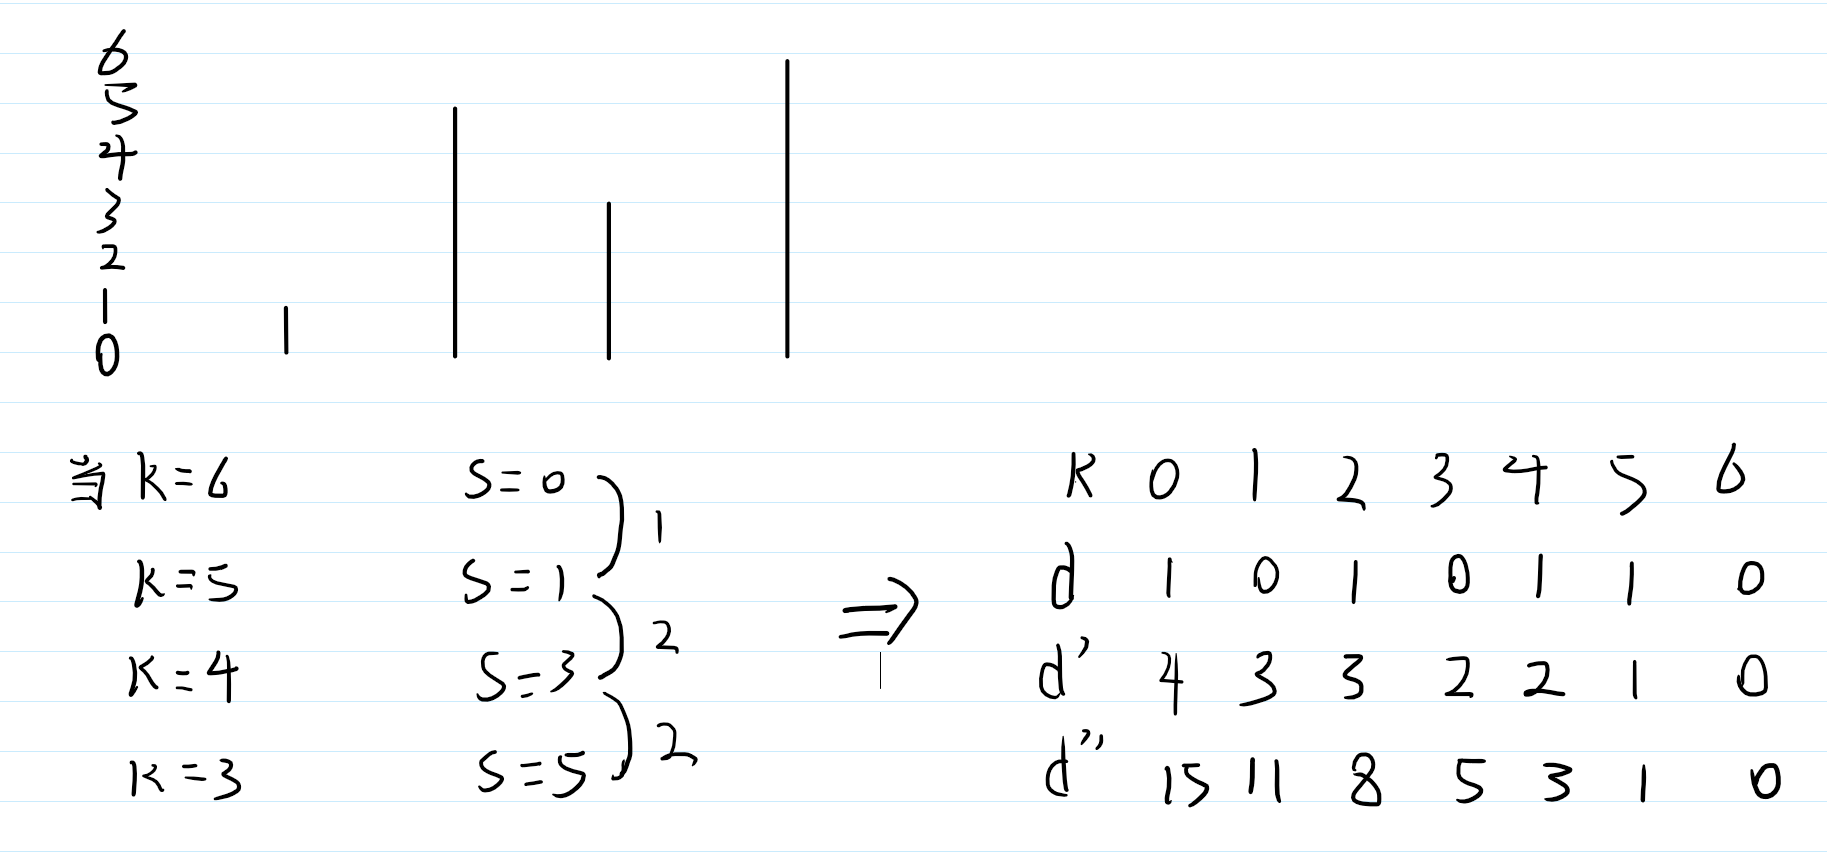 6
5
4
3
2
1
0
当 k=6 S=0
1
k=5 S=1
2
k=4 S=3
2
k=3 S=5
⇒
k 0 1 2 3 4 5 6
d 1 0 1 0 1 1 0
d' 4 3 3 2 2 1 0
d'' 15 11 8 5 3 1 0